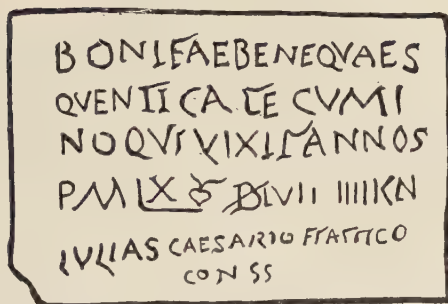 BONIFAEBENEQVAES
QVENTICATECVMI
NOQVIVIXITANNOS
PM LX IIIIKN
IVLIAS CAESARIO ETATTICO
CONSS